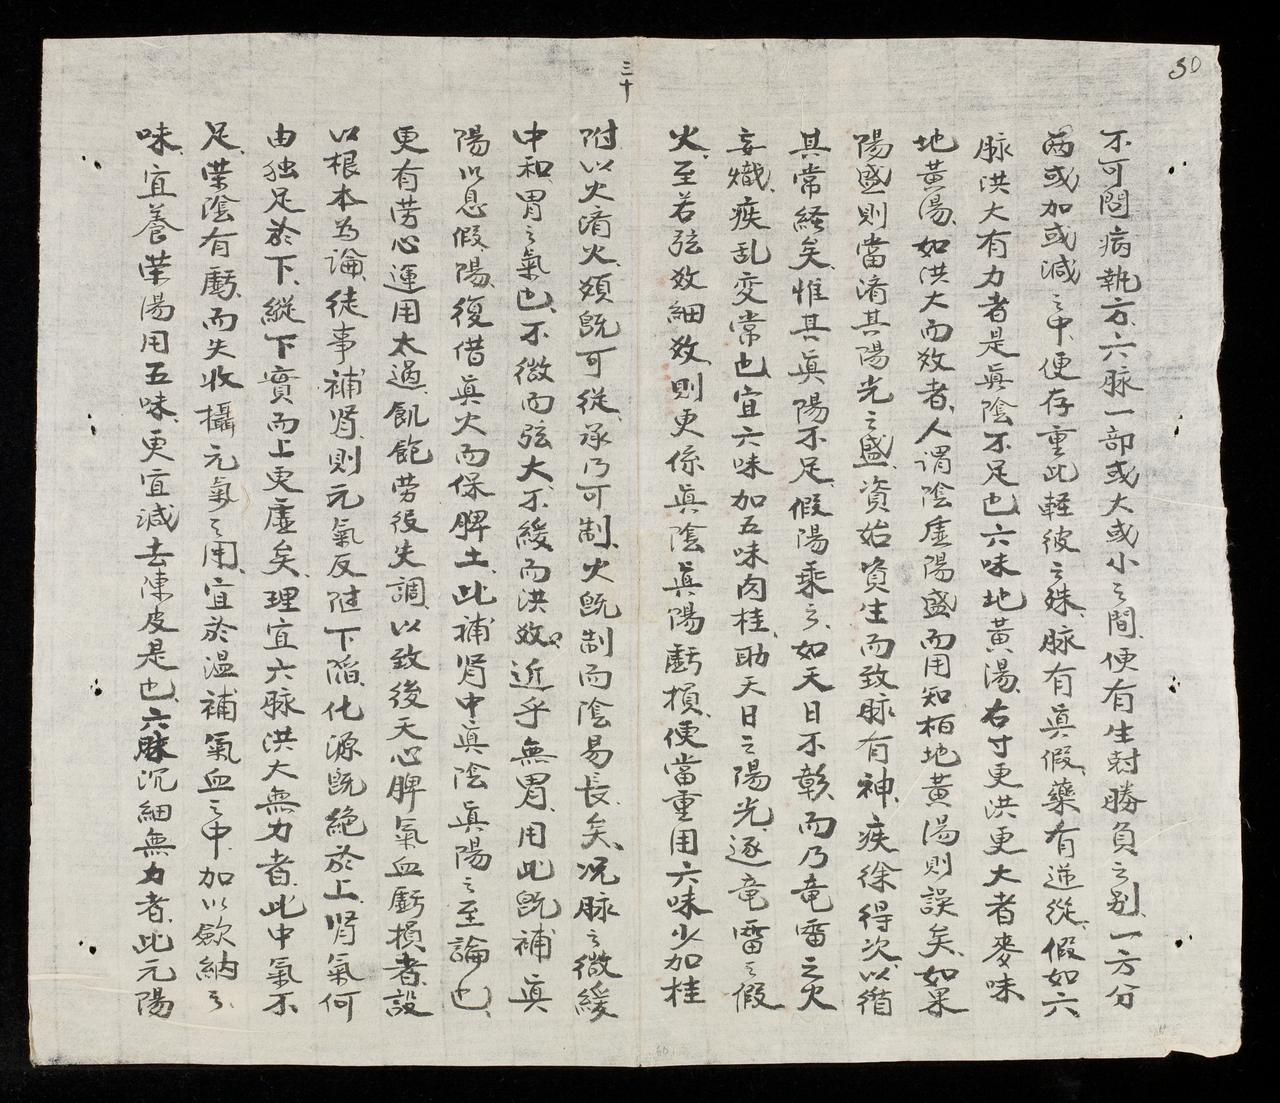 50
三十
不可問病執方、六脉一部或大或小之間、便有生尅勝負之别、一方分
两或加或减之中、便存重此軽彼之殊、脉有眞假、藥有逆從、假如六
脉洪大有力者、是眞陰不足也、六味地黃湯、右寸更洪更大者、麥味
地黃湯、如洪大而效者、人谓陰虚陽盛而用知柏地黃湯則誤矣、如果
陽盛則當濟其陽光之盛、資始資生而致脉有神、疾徐得次、以循
其常経矣、惟其眞陽不足、假陽乘之、如天日不彰、而乃竜雷之火
妄熾、疾乱变常也、宜六味加五味肉桂、助天日之陽光、逐竜雷之假
火、至若弦效細效、則更係眞陰眞陽虧損、便當重用六味、少加桂
附、以火濟火、類旣可從、承乃可制、火旣制而陰易長矣、况脉之微緩
中和、胃之氣也、不微而弦大、不緩而洪效、近乎無胃、用此旣補眞
陽、以息假陽、復借眞火而保脾土、此補肾中眞陰眞陽之至論也、
更有劳心運用太過、飢飽劳役失調、以致後天心脾氣血虧損者、設
以根本为論、徒事補肾、則元氣反陡下陷、化源旣絶於上、肾氣何
由独足於下、縱下實而上更虚矣、理宜六脉洪大無力者、此中氣不
足、荣陰有虧、而失收攝元氣之用、宜於温補氣血之中、加以歛納之
味、宜養荣湯用五味、更宜减去陳皮是也、六脉沉細無力者、此元陽